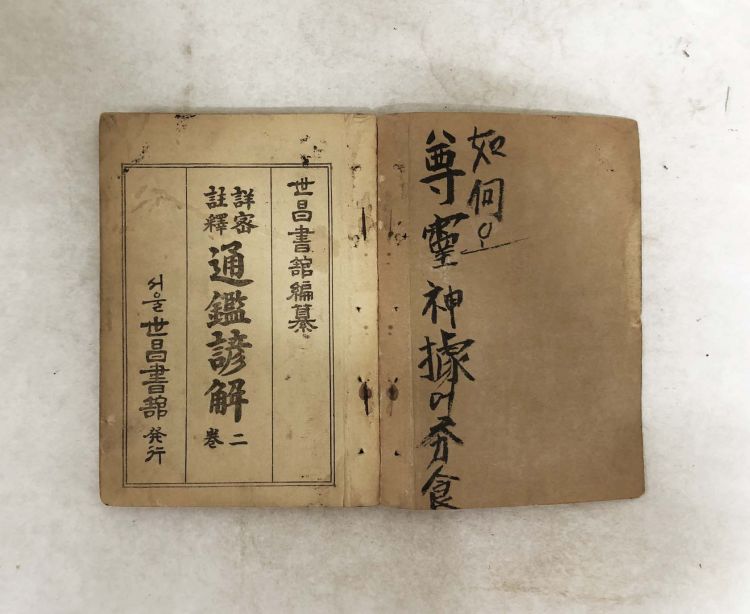 如何오
尊靈神據이夯食
世昌書舘編纂
詳密註釋
通鑑諺解 卷二
서울 世昌書舘 發行